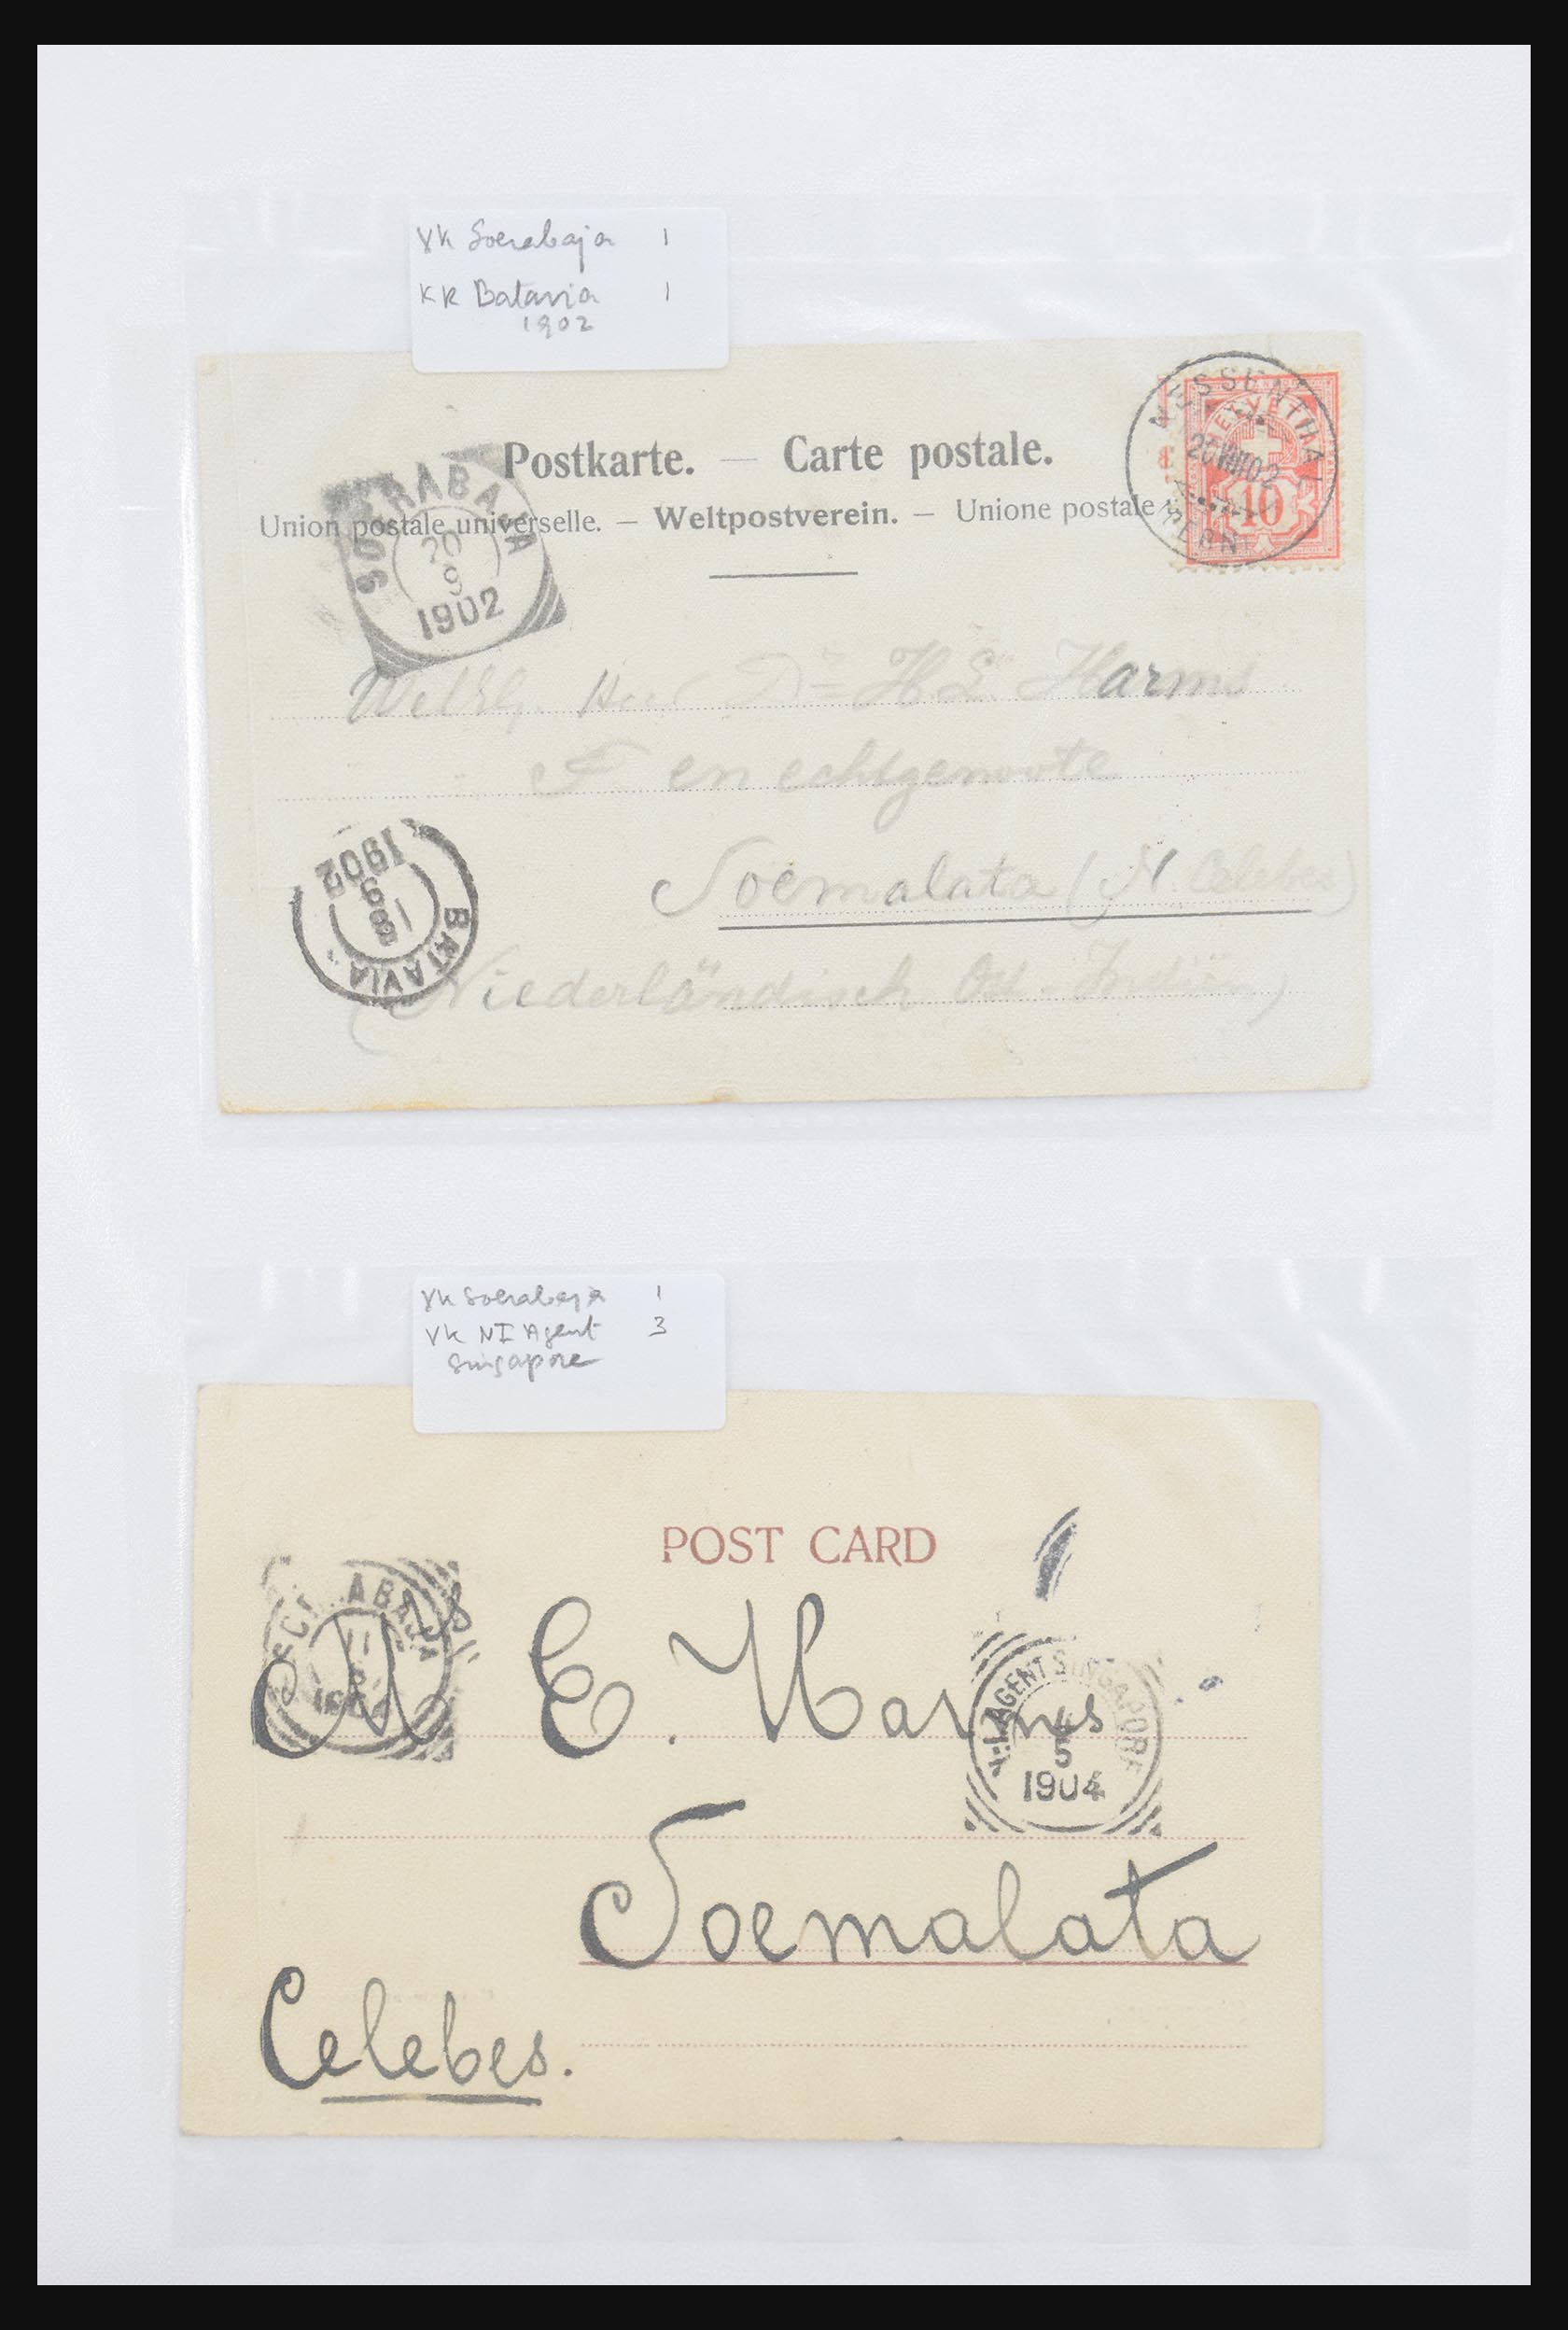 VK Soerabaja 1
KR Batavia 1
1902
Postkarte. — Carte postale.
Union postale universelle. — Weltpostverein. — Unione postale
HELVETIA
10
NESSENTHAL
VIII 02
SOERABAJA
20
9
1902
Dr H E Harms
en echtgenoote
Soemalata (N Celebes)
(Niederländisch Ost-Indien)
BATAVIA
9
1902
VK Soerabaja 1
VK NI Agent 3
Singapore
POST CARD
ABAJA
11
E. Harms
AGENT SINGAPORE
4
5
1904
Soemalata
Celebes.